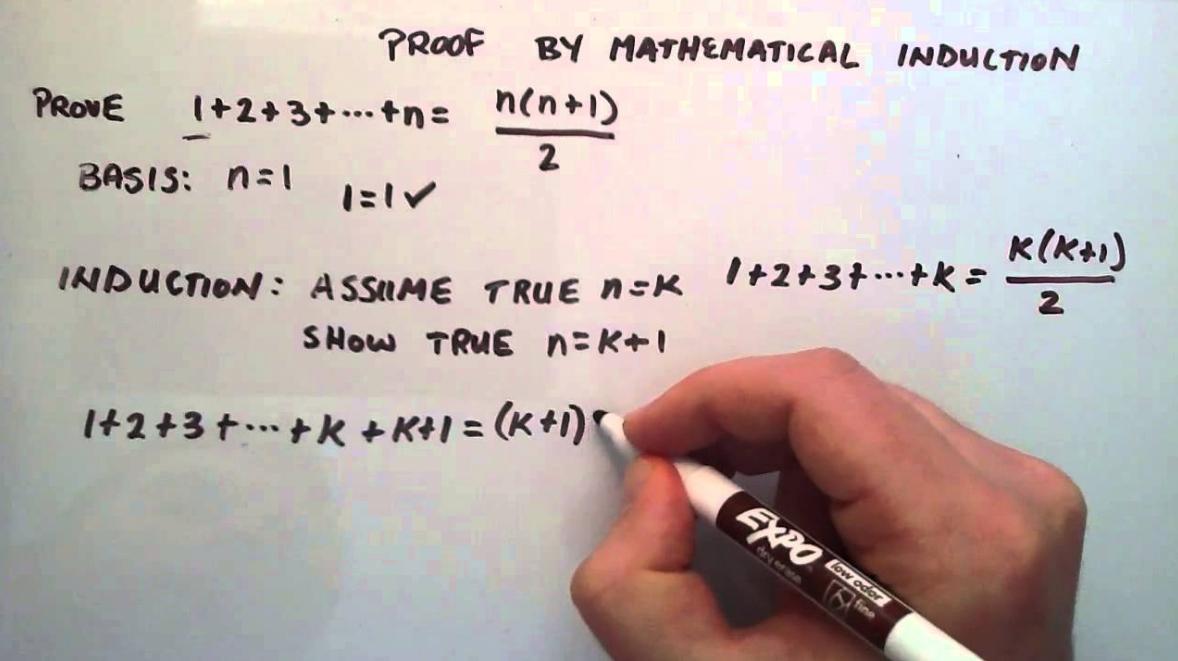 PROOF BY MATHEMATICAL INDUCTION
PROVE 1+2+3+...+n= n(n+1)/2
BASIS: n=1 1=1✓
INDUCTION: ASSUME TRUE n=K 1+2+3+...+K= K(K+1)/2
SHOW TRUE n=K+1
1+2+3+...+K+K+1=(K+1)
EXPO
dry erase
low odor
fine